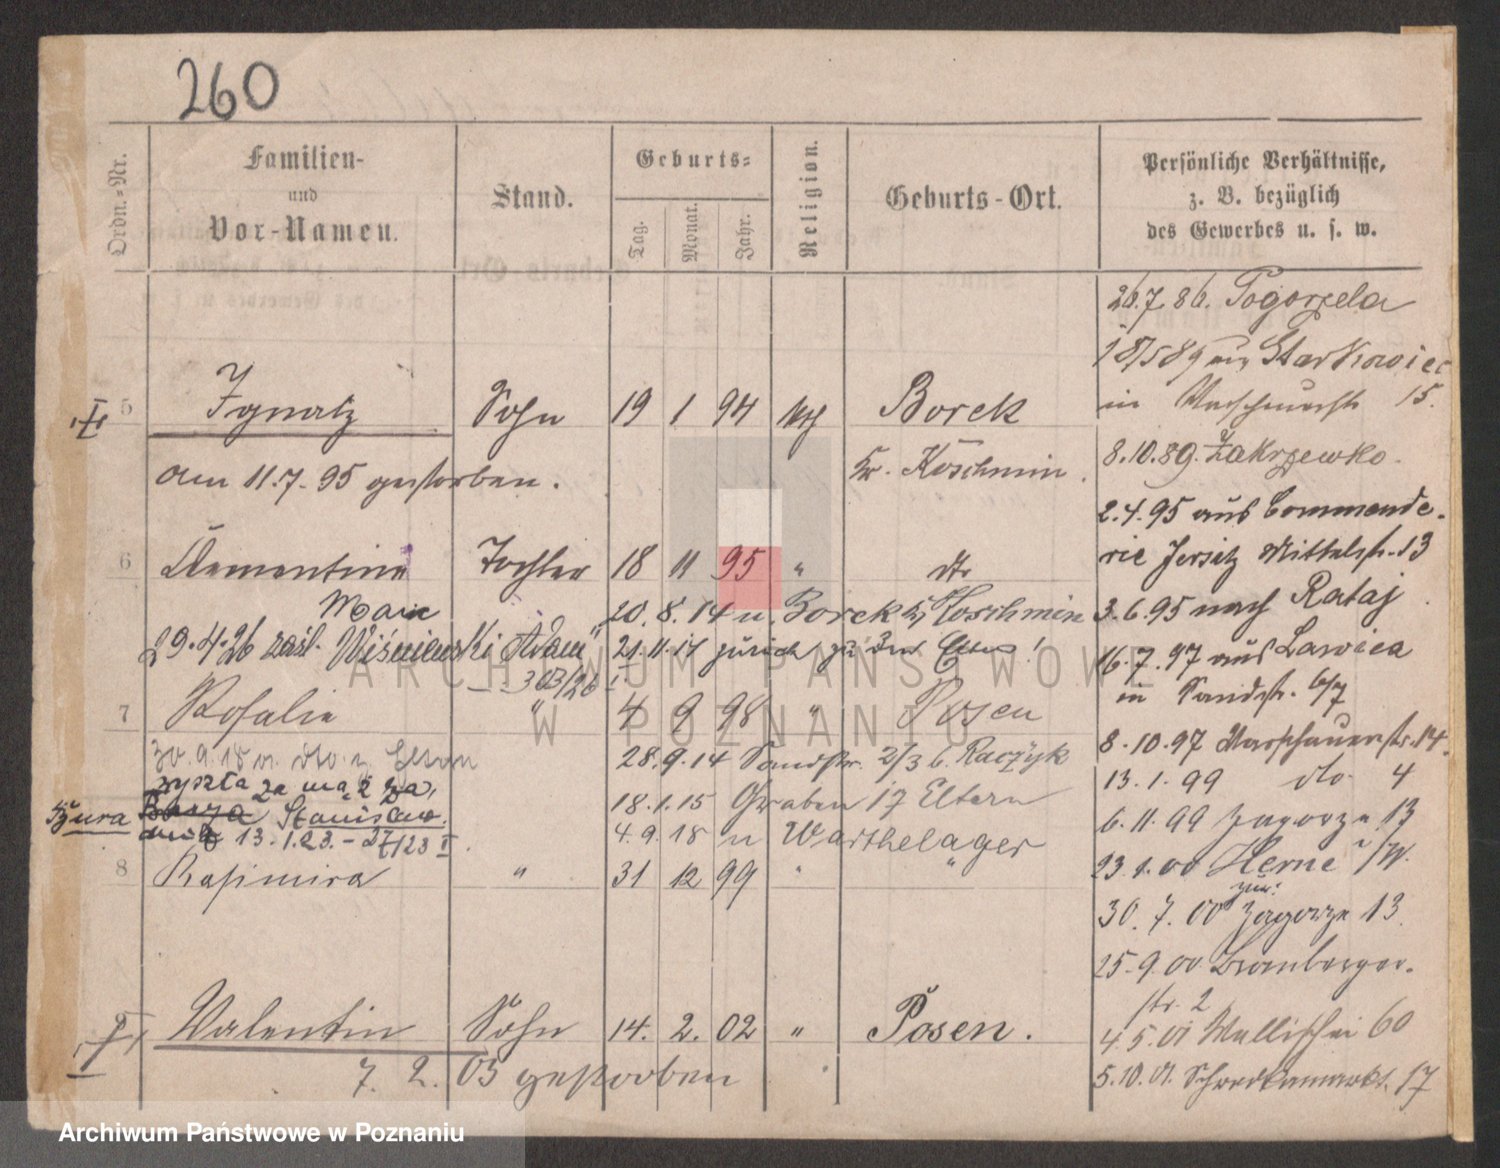 260
Ordn.-Nr.
Familien-
und
Vor-Namen.
Stand.
Geburts-
Tag.
Monat.
Jahr.
Religion.
Geburts-Ort.
Persönliche Verhältnisse,
z. B. bezüglich
des Gewerbes u. s. w.
26.7.86. Pogorzela
Starkowiec
in 15.
5 Ignatz Sohn 19 1 94 Borek
Kr. Koschmin.
am 11.7.95 gestorben.
8.10.89. Zakrzewko.
2.4.95 aus Commende-
rie Jersitz Mittelstr. 13
6 Clementine Tochter 18 11 95 " dto
Marie
20.8.14 u. Borek Kr Koschmin
3.6.95 nach Rataj
29.4.26 zaśl. Wiśniewski Adam
21.11.14 zurück zu den Eltern!
303/26 I
16.7.97 aus Lawica
in Sandstr. 6/7
7 Rosalie " 4 9 98 " Posen
30.9.18 dto z. Eltern
28.9.14 Sandstr. 2/3 b. Raczyk
8.10.97 Warschauerstr. 14.
wyszła za mąż za
18.1.15 Graben 17 Eltern
13.1.99 dto 4
Bzura Stanisław
13.1.23. - 27/23 I
4.9.18 n Warthelager
6.11.99 Zagorze 13
8 Kasimira " 31 12 99 " "
23.1.00 Herne i/W.
zur.
30.7.00 Zagorze 13
25.9.00 Bromberger-
str. 2
9 Valentin Sohn 14. 2. 02 " Posen.
4.5.01 Wallischei 60
7. 2. 03 gestorben
5.10.01. Schrodkamarkt. 17
ARCHIWUM PAŃSTWOWE
W POZNANIU
Archiwum Państwowe w Poznaniu